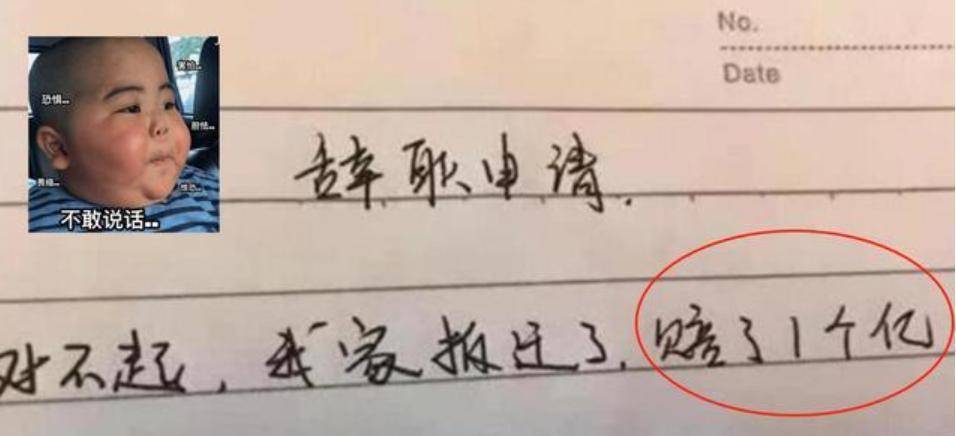 No.
Date
恐惧..
害怕..
胆怯..
畏缩..
惊恐..
不敢说话..
辞职申请.
对不起，我家拆迁了，赔了1个亿